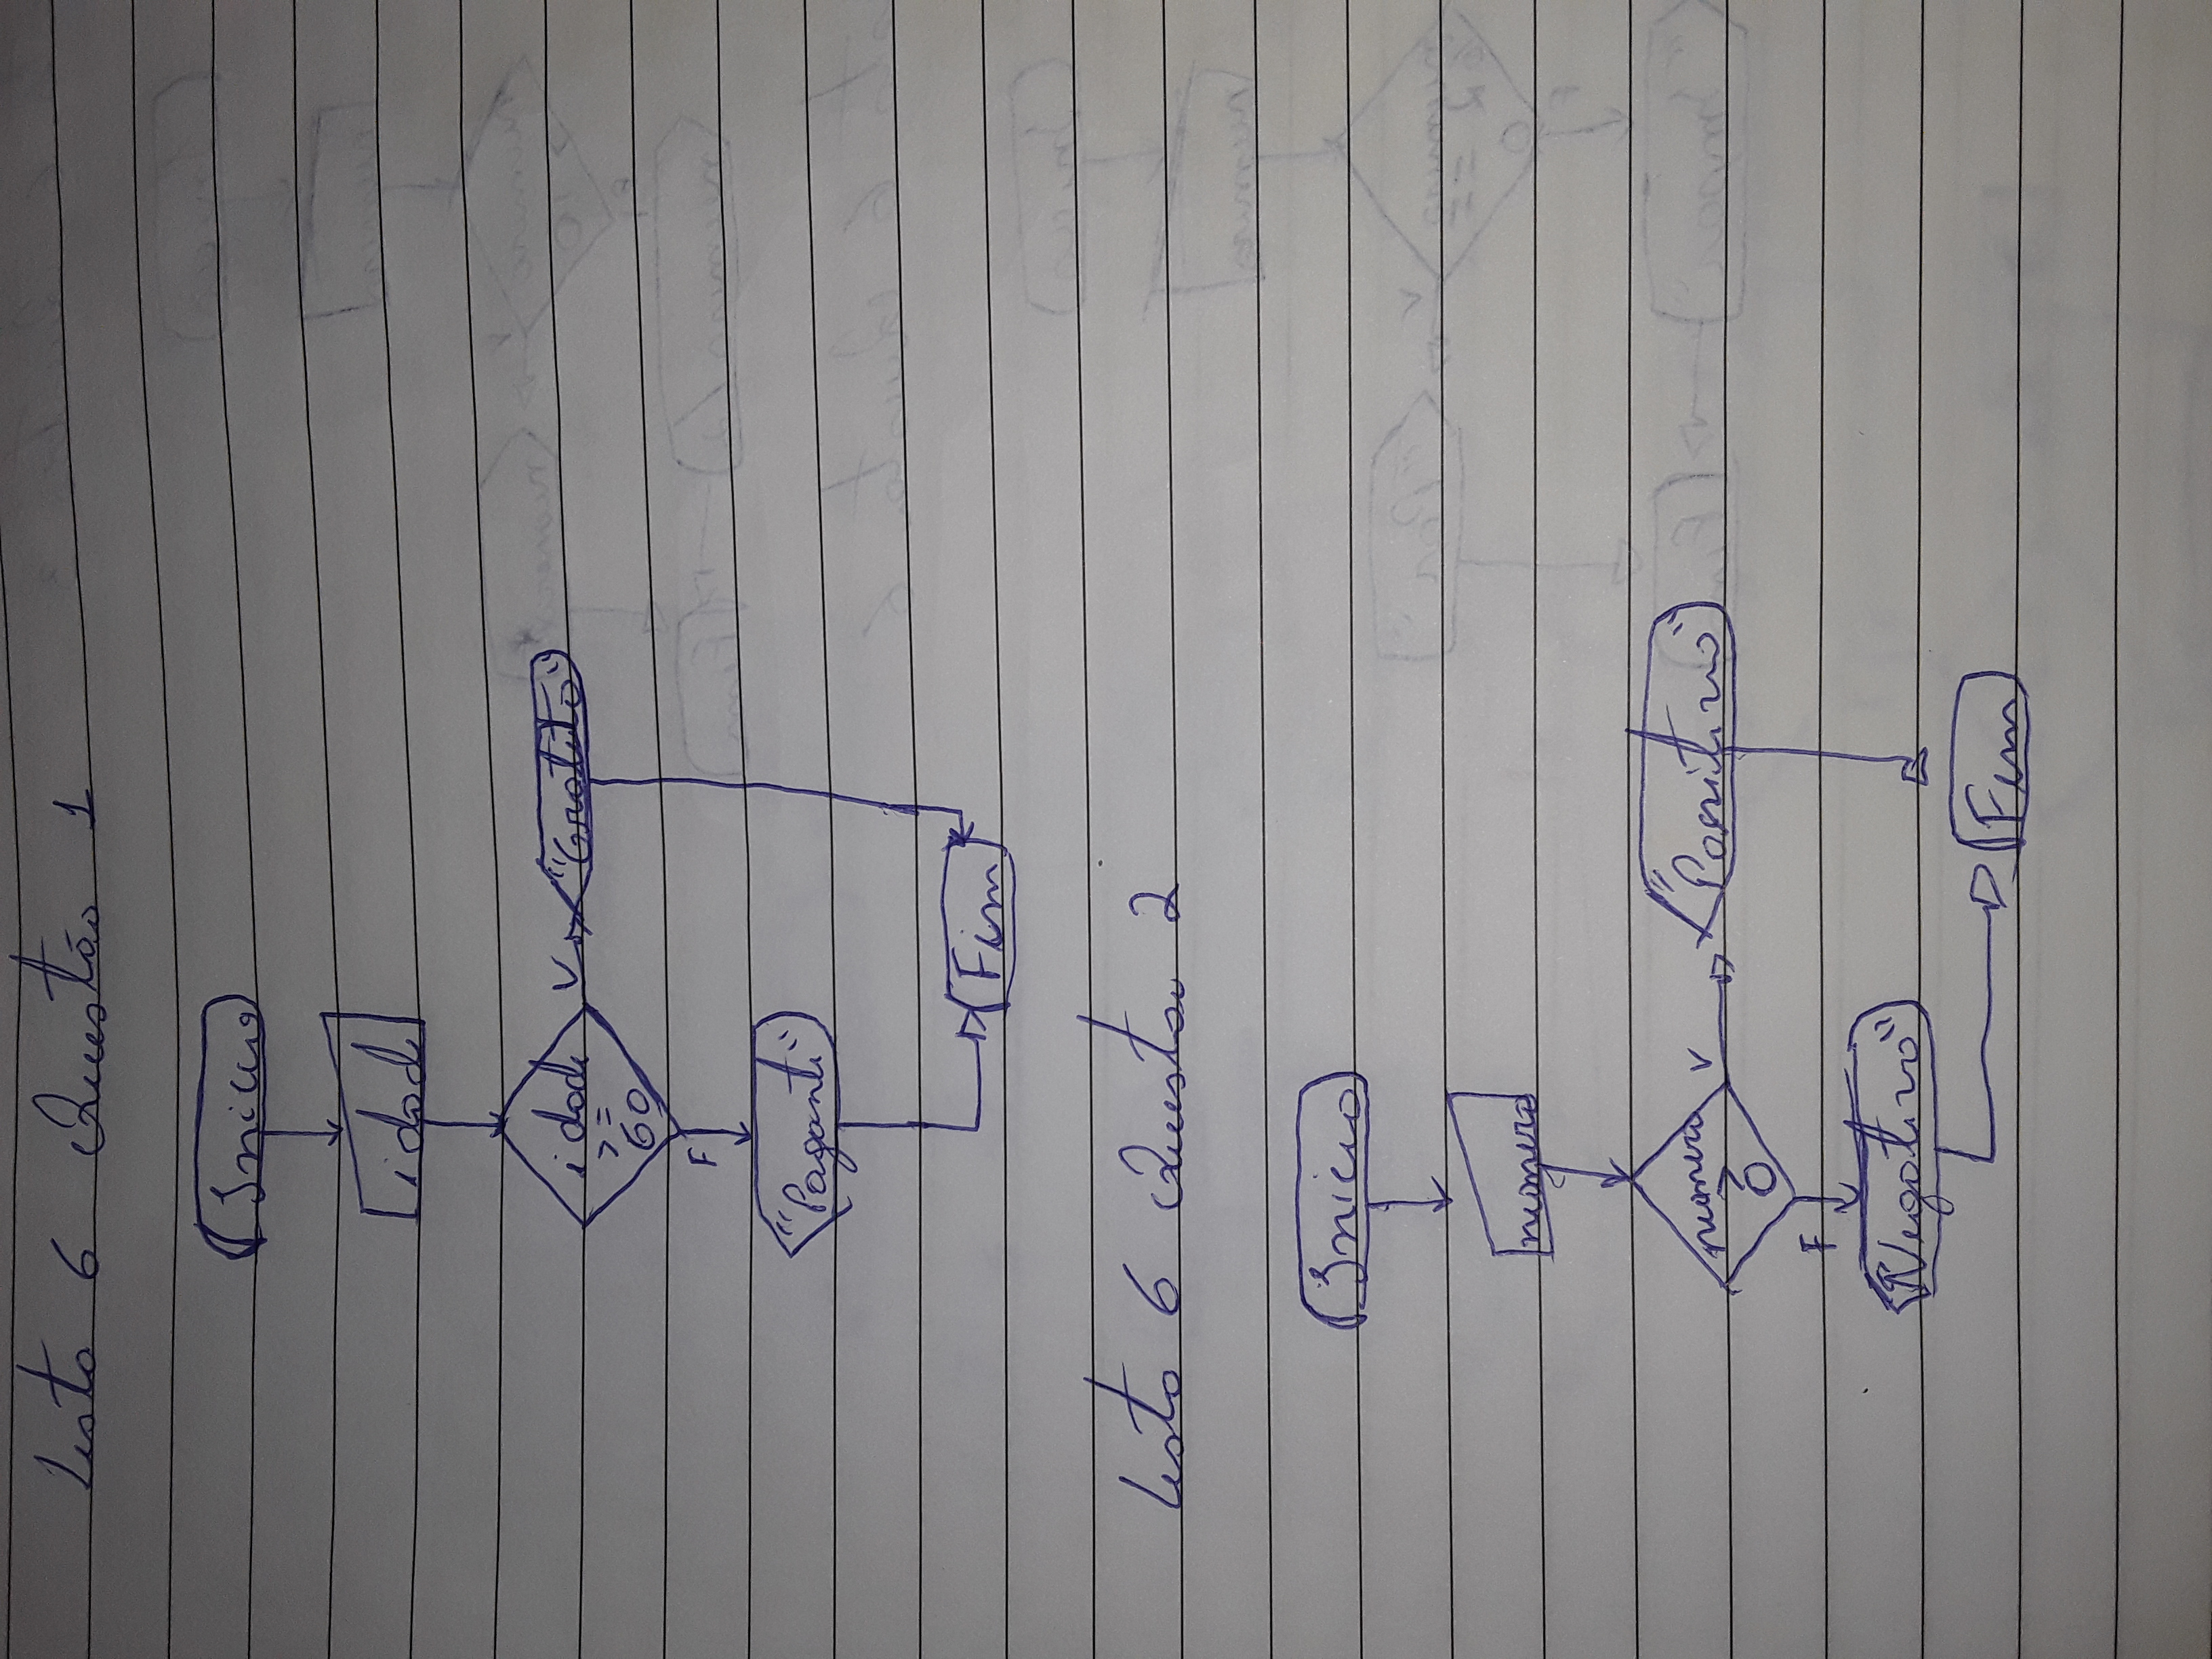 Lista 6 Questão 1
Inicio
idade
idade V "Gratuito"
>=
60
F
"Pagante"
Fim
Lista 6 Questao 2
Inicio
numero
numero V "Positivo"
>
0
F
"Negativo"
Fim